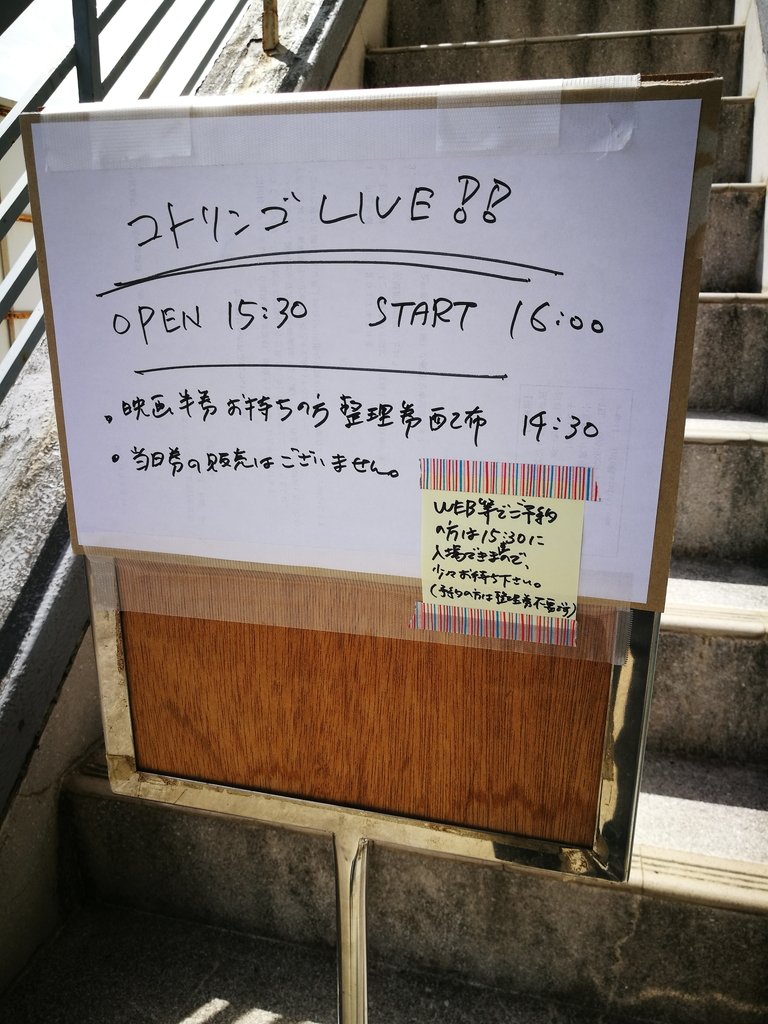 コトリンゴ LIVE!!
OPEN 15:30 START 16:00
・映画半券お持ちの方 整理券配布 14:30
・当日券の販売はございません。
WEB等でご予約
の方は15:30に
入場できますので、
少々お待ち下さい。
(予約の方は整理券不要です)